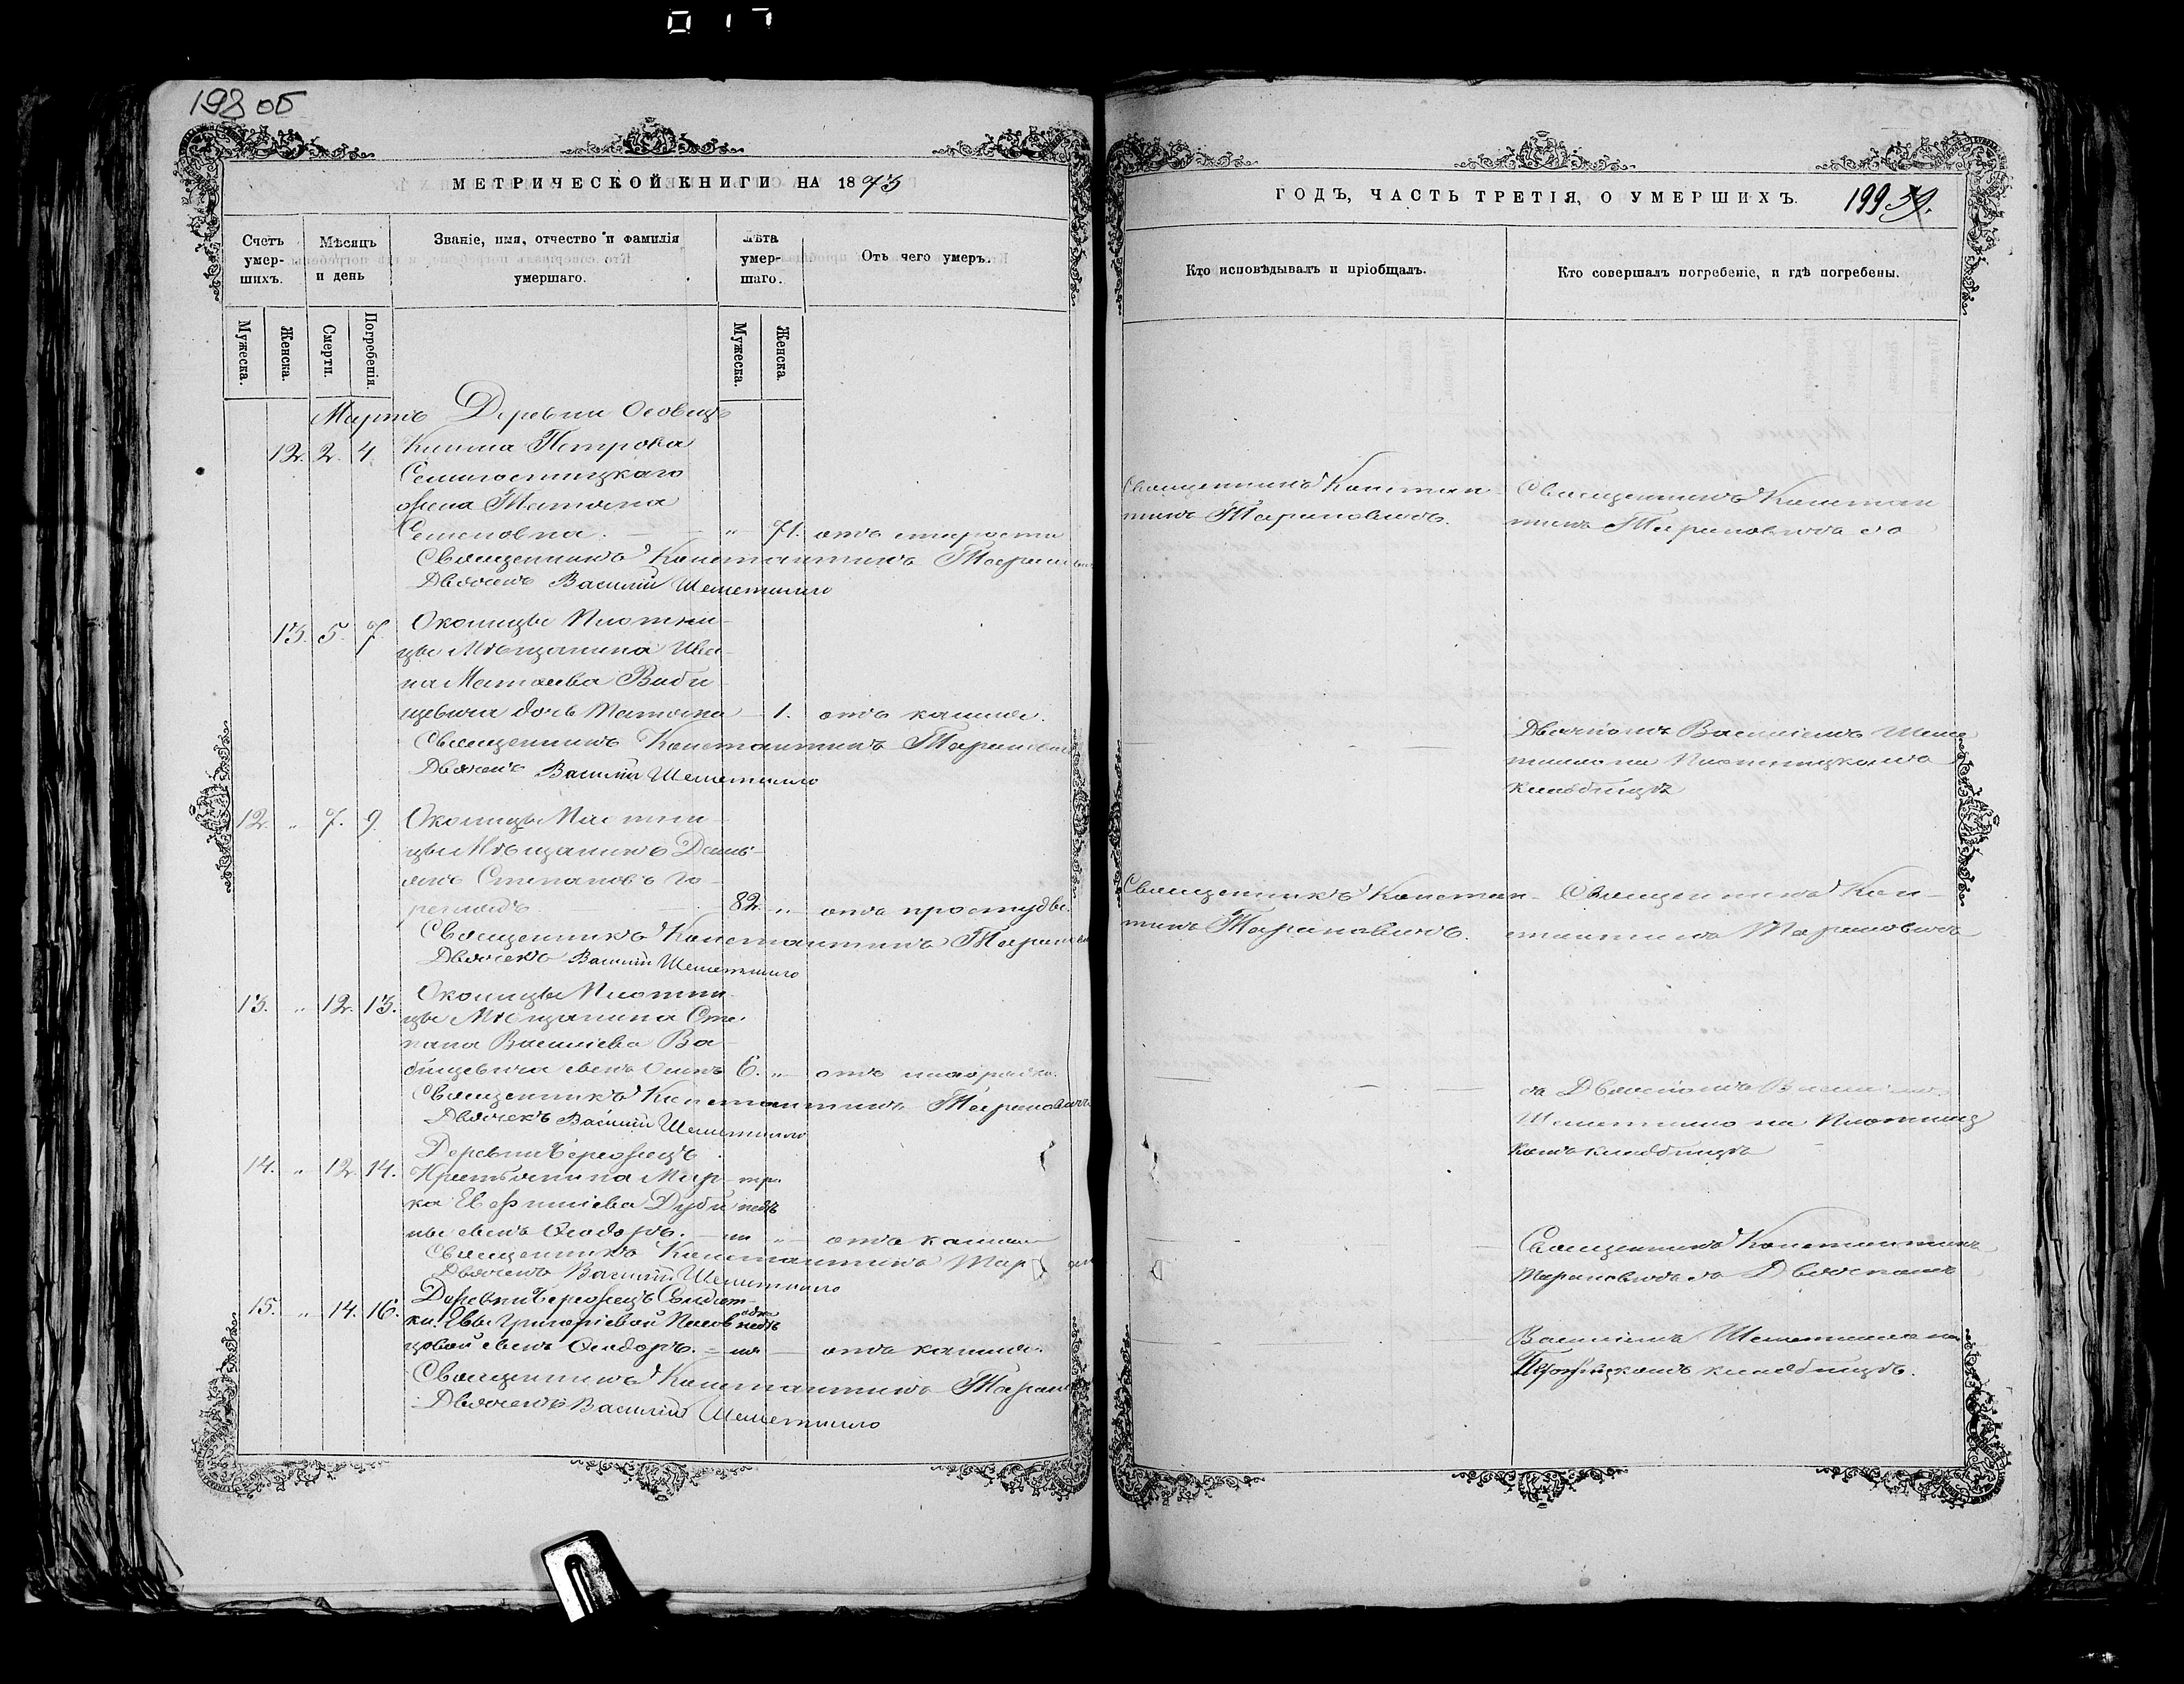 017
198 об
МЕТРИЧЕСКОЙ КНИГИ НА 1873
Счетъ умер-шихъ.
Мѣсяцъ и день
Званіе, имя, отчество и фамилія умершаго.
Лѣта умер-шаго.
Отъ чего умеръ.
Мужеска.
Женска.
Смерти.
Погребенія.
Мужеска.
Женска.
Мартъ Деревни Осовецъ
12. 2. 4. Петрова
Семигостицкаго
жена Татіана
Семеновна. " 71. отъ старости
Священникъ Константинъ
Дьячекъ Василій Шеметилло
13. 5. 7. Околицы Плотни-
цы Мѣщанина Ива-
на Матѳеева Баби
щевича дочь Татіана 1. отъ кашля.
Священникъ Константинъ
Дьячекъ Василій Шеметилло
12. " 7. 9. Околицы Плотни-
цы Мѣщанинъ Демь-
янъ Степановъ
82. " отъ простуды.
Священникъ Константинъ
Дьячекъ Василій Шеметилло
13. " 12. 13. Околицы Плотни-
цы Мѣщанина Сте-
пана Василіева Ба-
бищевича сынъ 6. " отъ
Священникъ Константинъ Тарановичъ
Дьячекъ Василій Шеметилло
Деревни Бережецъ
14. " 12. 14. Крестьянина Мар- тр.
ка Евфиміева недѣ
сынъ Ѳеодоръ. ли " отъ кашля
Священникъ Константинъ
Дьячекъ Василій Шеметилло
15. " 14. 16. Деревни Бережецъ Солдат-
ки Евы Григоріевой недѣ
сынъ Ѳеодоръ. отъ кашля.
Священникъ Константинъ
Дьячекъ Василій Шеметилло
ГОДЪ, ЧАСТЬ ТРЕТІЯ, О УМЕРШИХЪ.
199
39.
Кто исповѣдывалъ и пріобщалъ.
Кто совершалъ погребеніе, и гдѣ погребены.
Священникъ Констан-
тинъ Тарановичъ.
Священникъ Констан
тинъ Тарановичъ съ
Дьячкомъ Василіемъ Шеме
тилло на Плотницкомъ
кладбищѣ
Священникъ Констан-
тинъ Тарановичъ.
Священникъ Кон-
стантинъ Тарановичъ
съ Дьячкомъ Василіемъ
Шеметилло на Плотниц
комъ кладбищѣ
Священникъ Константинъ
Тарановичъ съ Дьячкомъ
Василіемъ Шеметилло на
кладбищѣ.